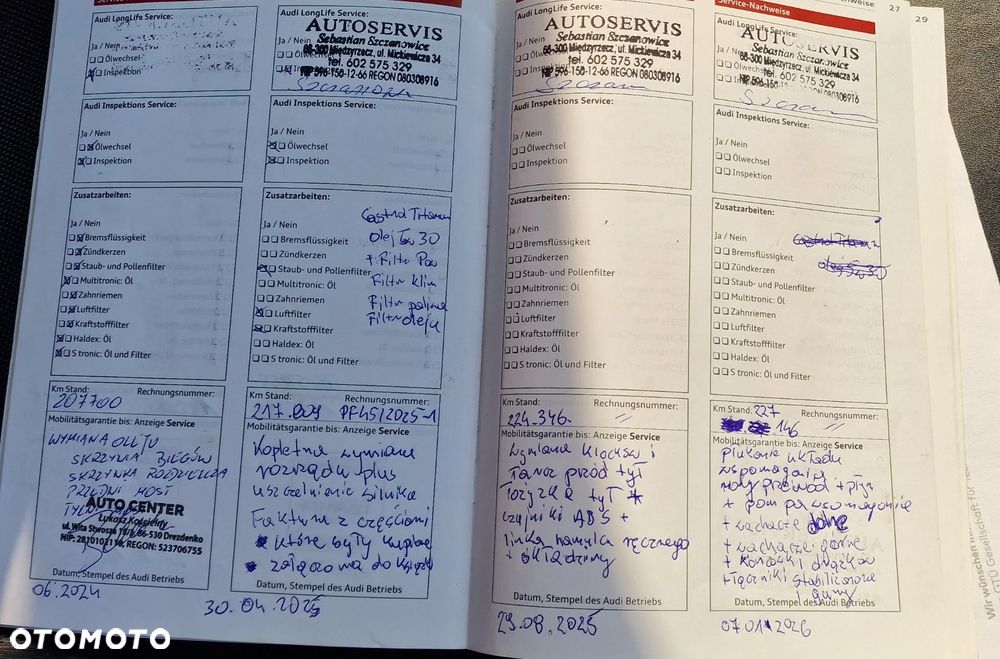 Service-Nachweise
27
29
Audi LongLife Service:
Ja / Nein
Ölwechsel
Inspektion
Audi Inspektions Service:
Ja / Nein
Ölwechsel
Inspektion
Zusatzarbeiten:
Ja / Nein
Bremsflüssigkeit
Zündkerzen
Staub- und Pollenfilter
Multitronic: Öl
Zahnriemen
Luftfilter
Kraftstofffilter
Haldex: Öl
S tronic: Öl und Filter
Km Stand:
Rechnungsnummer:
207700
Mobilitätsgarantie bis: Anzeige Service
WYMIANA OLEJU
SKRZYNIA BIEGÓW
SKRZYNKA ROZDZIELCZA
PRZEDNI MOST
AUTO CENTER
Łukasz Kościelny
ul. Wita Stwosza 66-530 Drezdenko
REGON: 523706755
Datum, Stempel des Audi Betriebs
06.2024
Audi LongLife Service:
AUTOSERVIS
Sebastian Szczanowicz
66-300 Międzyrzecz, ul. Mickiewicza 34
tel. 602 575 329
NIP 596-158-12-66 REGON 080308916
Audi Inspektions Service:
Ja / Nein
Ölwechsel
Inspektion
Zusatzarbeiten:
Castrol Titanium
Ja / Nein
olej 5w30
Bremsflüssigkeit
Zündkerzen
Staub- und Pollenfilter
Filtr klim
Multitronic: Öl
Zahnriemen
Filtr paliwa
Luftfilter
Filtr oleju
Kraftstofffilter
Haldex: Öl
S tronic: Öl und Filter
Km Stand:
Rechnungsnummer:
217.009 PF45/2025-1
Mobilitätsgarantie bis: Anzeige Service
Kopletna wymiana
rozrządu plus
uszczelnienie silnika
Faktura z częściami
które były kupione
załączona do książki
Datum, Stempel des Audi Betriebs
30.04.2025
Audi LongLife Service:
AUTOSERVIS
Sebastian Szczanowicz
66-300 Międzyrzecz, ul. Mickiewicza 34
tel. 602 575 329
NIP 596-158-12-66 REGON 080308916
Audi Inspektions Service:
Ja / Nein
Ölwechsel
Inspektion
Zusatzarbeiten:
Ja / Nein
Bremsflüssigkeit
Zündkerzen
Staub- und Pollenfilter
Multitronic: Öl
Zahnriemen
Luftfilter
Kraftstofffilter
Haldex: Öl
S tronic: Öl und Filter
Km Stand:
Rechnungsnummer:
224.346 - //
Mobilitätsgarantie bis: Anzeige Service
wymiana klocków i
tarcz przód tył
łożyska tył
czujniki ABS +
linka hamulca ręcznego
+ okładziny
Datum, Stempel des Audi Betriebs
29.08.2025
Audi LongLife Service:
AUTOSERVIS
Sebastian Szczanowicz
66-300 Międzyrzecz, ul. Mickiewicza 34
tel. 602 575 329
REGON 080308916
Audi Inspektions Service:
Ja / Nein
Ölwechsel
Inspektion
Zusatzarbeiten:
Ja / Nein
Bremsflüssigkeit
Zündkerzen
Staub- und Pollenfilter
Multitronic: Öl
Zahnriemen
Luftfilter
Kraftstofffilter
Haldex: Öl
S tronic: Öl und Filter
Km Stand: 227
Rechnungsnummer:
146 //
Mobilitätsgarantie bis: Anzeige Service
płukanie układu
wspomagania
nowy przewód + płyn
+ pompa wspomagania
+ wahacze dolne
+ wahacze górne
+ końcówki drążków
+ łączniki stabilizatora
gumy
Datum, Stempel des Audi Betriebs
07.01.2026
Wir wünschen
GTÜ Gesellschaft für
OTOMOTO